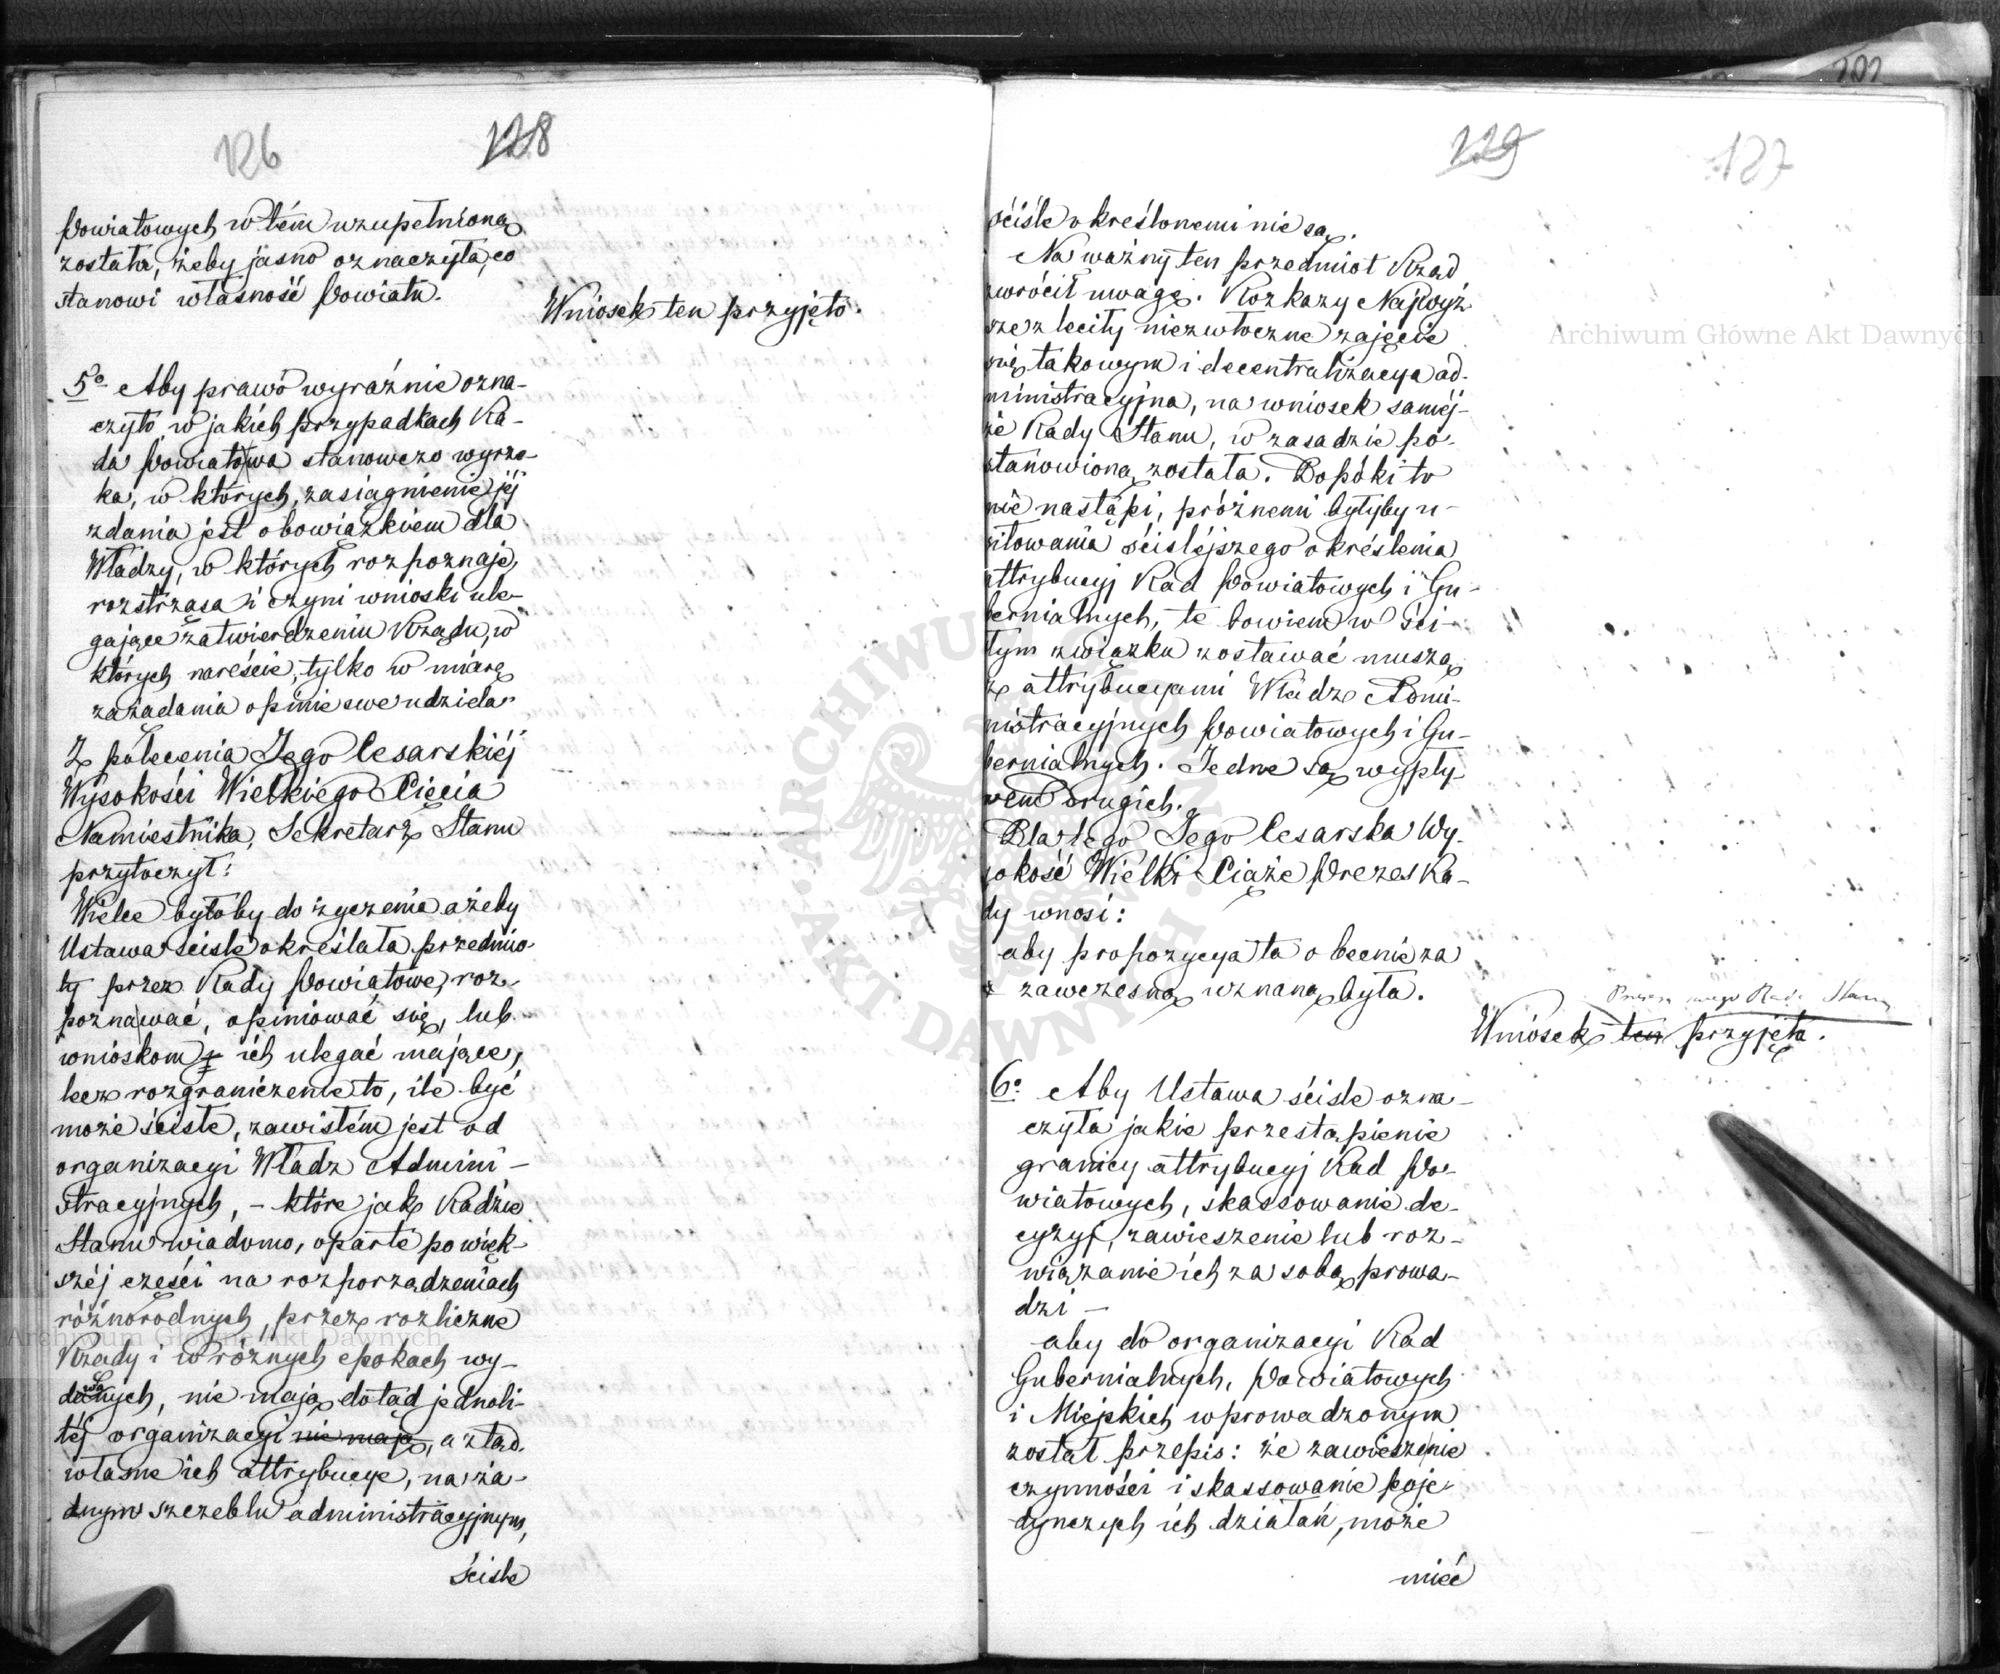 126
128
Powiatowych w tém uzupełnioną
została, żeby jasno oznaczyła, co
stanowi własność Powiatu.
Wniosek ten przyjęto.
5o Aby prawo wyraźnie ozna-
czyło w jakich przypadkach Ra-
da Powiatowa stanowczo wyrze-
ka, w których, zasiągnienie jéj
zdania jest obowiązkiem dla
Władzy, w których rozpoznaje,
roztrząsa i czyni wnioski ule-
gające zatwierdzeniu Rządu, w
których nareście, tylko w miarę
zażądania opinie swe udziela
Z polecenia Jego Cesarskiéj
Wysokości Wielkiego Cięcia
Namiestnika, Sekretarz Stanu
przytoczył:
Wielce byłoby do życzenia ażeby
Ustawa ściśle określała przedmio-
ty przez Rady Powiatowe, roz-
poznawać, opiniować się, lub
wnioskom ich ulegać mające,
lecz rozgraniczenie to, ile być
może ścisłe, zawisłém jest od
organizacyi Władz Admini-
stracyjnych, - które jak Radzie
Stanu wiadomo, oparte po więk-
széj części na rozporządzeniach
różnorodnych, przez rozliczne
Rządy i w różnych epokach wy-
dawanych, nie mają dotąd jednoli-
téj organizacyi nie mają, a ztąd
własne ich attrybucye, na ża-
dnym szczeblu administracyjnym,
ściśle
101
129
127
ściśle określonemi nie są.
Na ważny ten przedmiot Rząd
zwrócił uwagę. Rozkazy Najwyż
sze zleciły niezwłoczne zajęcie
się takowym i decentralizacya ad-
ministracyjna, na wniosek saméj-
że Rady Stanu, w zasadzie po-
stanowioną została. Dopóki to
nie nastąpi, próżnemi byłyby u-
siłowania ściślejszego określenia
attrybucyj Rad Powiatowych i Gu-
bernialnych, te bowiem w ści-
słym związku zostawać muszą
z attrybucyami Władz Admi-
nistracyjnych Powiatowych i Gu-
bernialnych. Jedne są wypły-
wem drugich.
Dla tego Jego Cesarska Wy-
sokość Wielki Ciąże Prezes Ra-
dy wnosi:
aby propozycya ta obecnie za
zawczesną uznaną była.
Rada Stanu
Wniosek ten przyjęła.
6o Aby Ustawa ściśle ozna-
czyła jakie przestąpienie
granicy attrybucyj Rad Po-
wiatowych, skassowanie de-
cyzyi, zawieszenie lub roz-
wiązanie ich za sobą prowa-
dzi -
aby do organizacyi Rad
Gubernialnych, Powiatowych
i Miejskich wprowadzonym
został przepis: że zawieszenie
czynności i skassowanie poje-
dynczych ich działań, może
mieć
Archiwum Główne Akt Dawnych
Archiwum Główne Akt Dawnych
ARCHIWUM GŁÓWNE AKT DAWNYCH